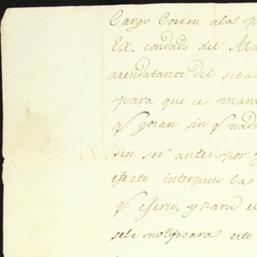 Cargo Corren a las p
Ex. condado del Ma
arendatarios del sitad
para que se man
q gosan sin q nad
sin ser antes por
efecto interpuu las
q. esero, y para el
sele notificara esto